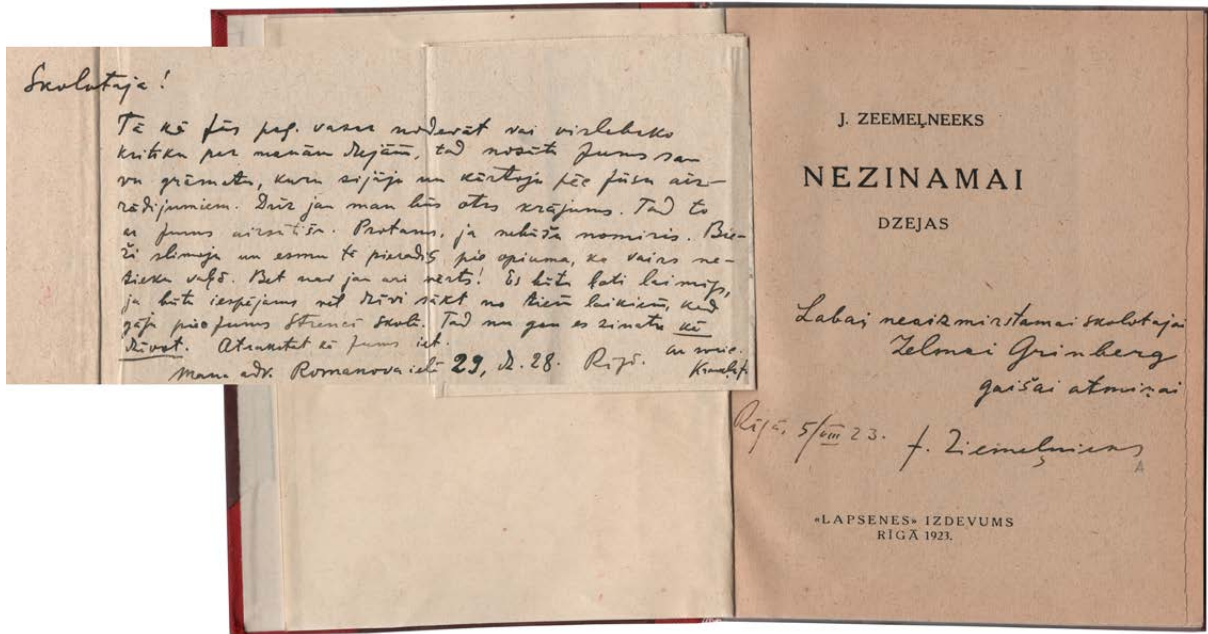 Skolotāja!
Tā kā Jūs pag. vasar nodevāt vai vislabāko
kritiku par manām dzejām, tad nosūtu Jums sa-
vu grāmatu, kuru sijāju un kārtoju pēc Jūsu aiz-
rādījumiem. Drīz jau man būs otrs krājums. Tad to
ar Jums aizsūtīšu. Protams, ja nebūšu nomiris. Bie-
ži slimoju un esmu tā pieradis pie opiuma, ka vairs ne-
tieku vaļā. Bet nav jau arī vērts! Es būtu ļoti laimīgs,
ja būtu iespējams vēl dzīvi sākt no tiem laikiem, kad
gāju pie Jums Strenču skolā. Tad nu gan es zinātu kā
dzīvot. Atrakstat kā Jums iet.
Mana adr. Romanova ielā 29, dz. 28. Rīgā.
ar sveic.
J. ZEEMEĻNEEKS
NEZINAMAI
DZEJAS
Labai neaizmirstamai skolotajai
Zelmai Grinberg
gaišai atmiņai
Rīgā, 5/VIII 23. J. Ziemeļnieks
«LAPSENES» IZDEVUMS
RĪGĀ 1923.